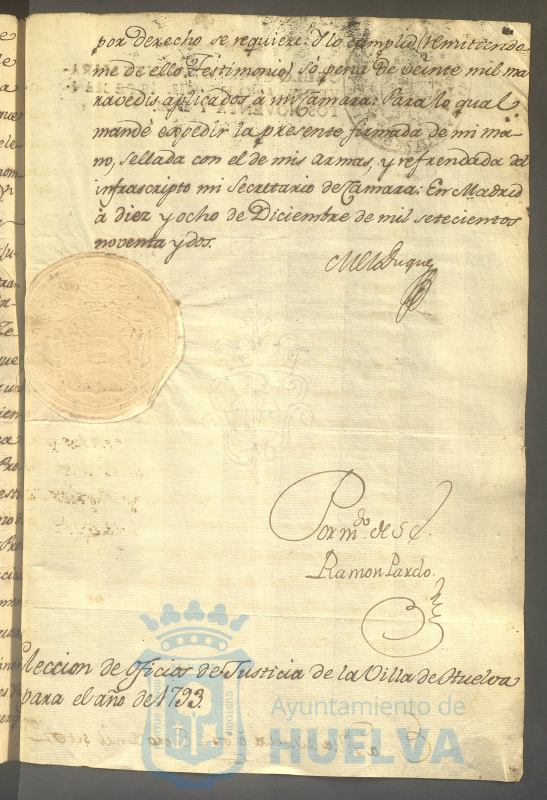 por derecho se requiere: Y lo cumplid (remitiendo-
me de ello Testimonio) so pena de veinte mil ma
ravedis aplicados à mi Camara: Para lo qual
mandè expedir la presente firmada de mi ma-
no, sellada con el de mis armas, y refrendada del
infrascripto mi Secretario de Camara: En Madrid
à diez y ocho de Diciembre de mil setecientos
noventa y dos.
Duque
Por m.do de S.E.
Ramon Pardo.
Eleccion de oficios de Justicia de la Villa de Huelva
para el año de 1793.
Ayuntamiento de
HUELVA